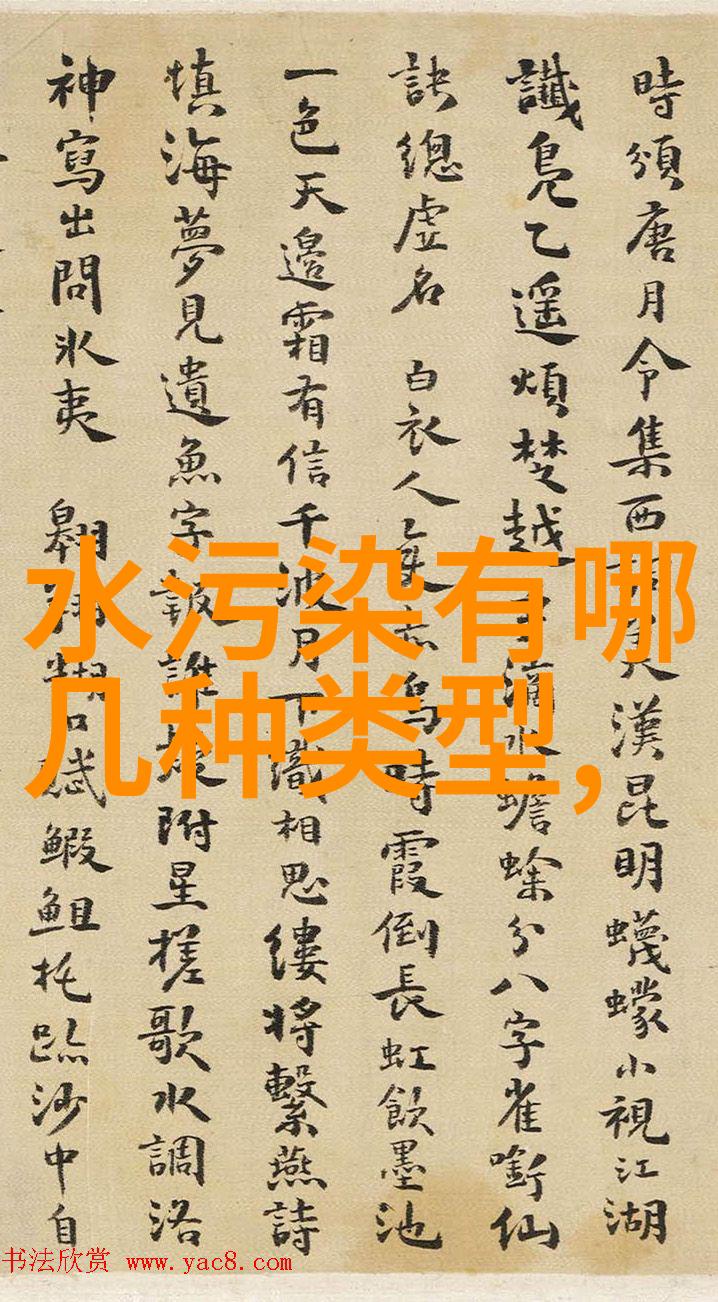 水污染有哪
几种类型,
時頒唐月令集西美漢昆明蠛蠓小視江湖
讖鳧乙遥煩楚越滴水蟾蜍分八字雀銜仙
訣總虚名 白衣人忘烏時霞倒長虹飲墨池
一色天邊霜有信千波月下識相思縷將繫燕詩
填海夢見遺魚字報誰附星槎歌水調洛
神寫出問氷夷 翱糊口鰕鉏托跡沙中自
书法欣赏 www.yac8.com